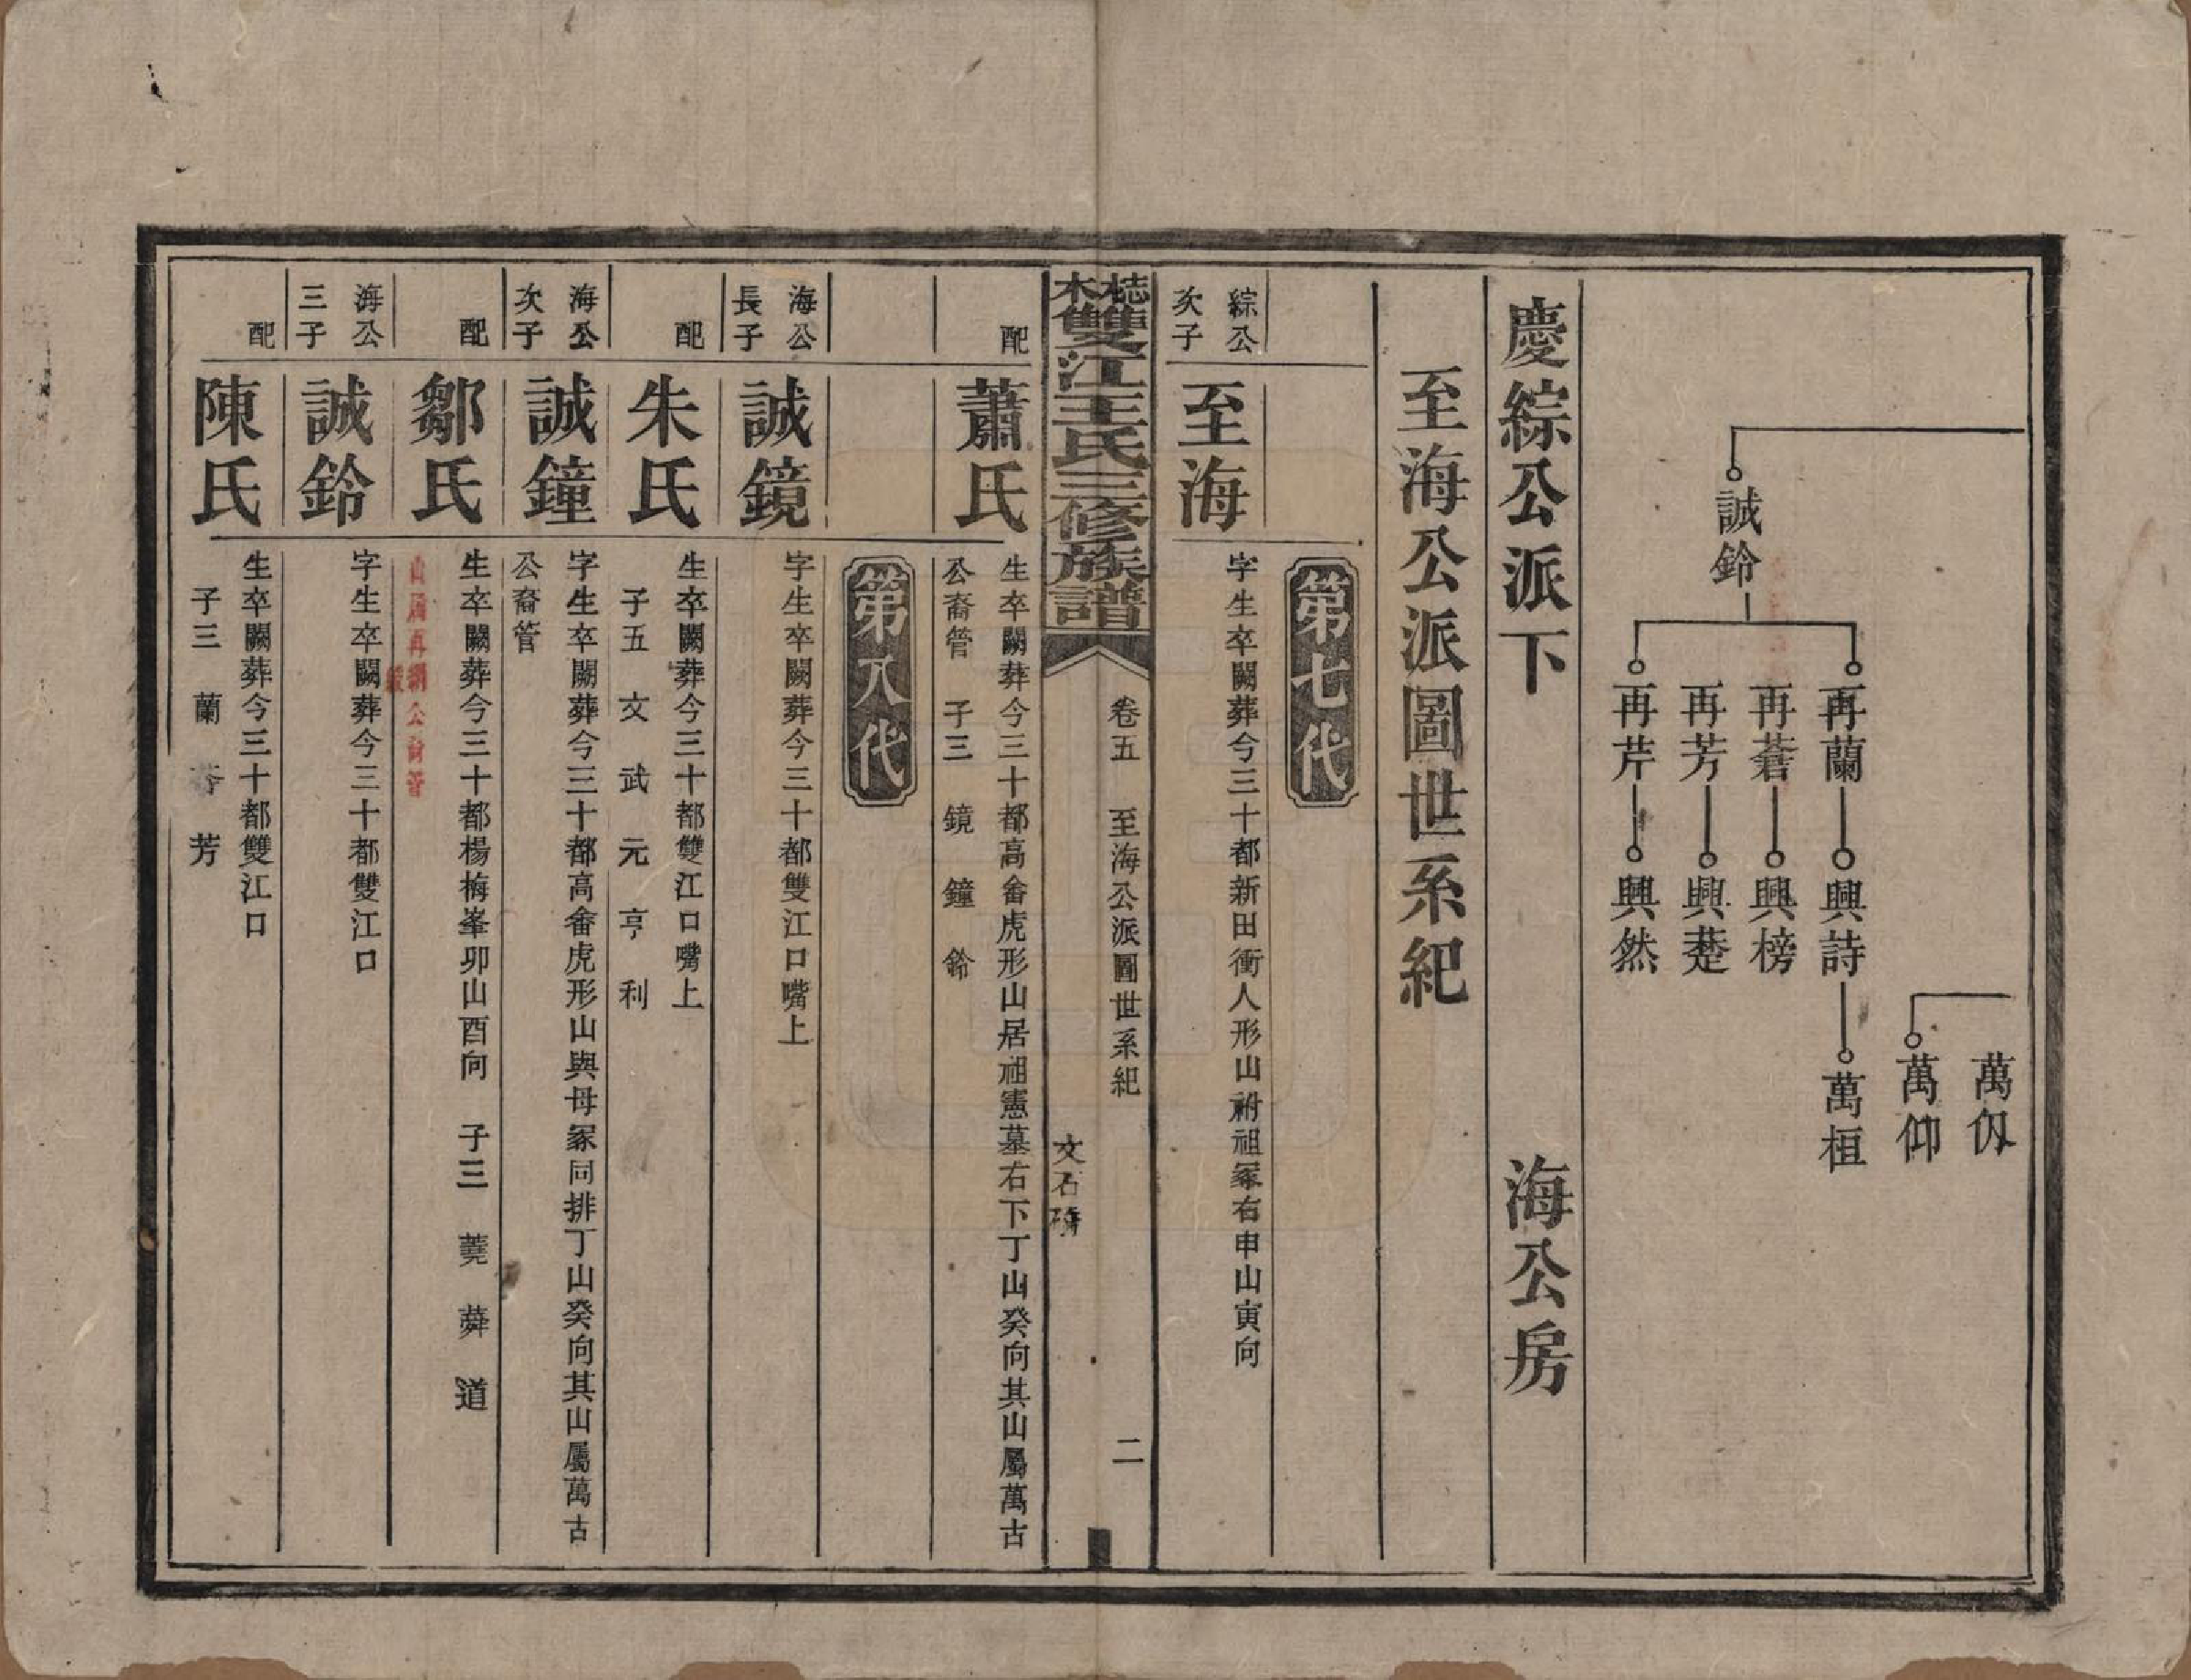 誠鈴
再蘭 興詩 萬桓
再蒼 興榜
再芳 興楚
再芹 興然
萬仭
萬仰
慶綜公派下 海公房
至海公派圖世系紀
第七代
綜公次子
至海
字生卒闕葬今三十都新田衝人形山祔祖冢右申山寅向
雙江王氏三修族譜
卷五 至海公派圖世系紀 二
配
蕭氏
生卒闕葬今三十都高畬虎形山居祖憲墓右下丁山癸向其山屬萬古
公裔管 子三 鏡 鐘 鈴
第八代
海公長子
誠鏡
字生卒闕葬今三十都雙江口嘴上
配
朱氏
生卒闕葬今三十都雙江口嘴上
子五 文 武 元 亨 利
海公次子
誠鐘
字生卒闕葬今三十都高畬虎形山與母冢同排丁山癸向其山屬萬古
公裔管
配
鄒氏
生卒闕葬今三十都楊梅峯卯山酉向 子三 蕘 蕣 道
海公三子
誠鈴
字生卒闕葬今三十都雙江口
配
陳氏
生卒闕葬今三十都雙江口
子三 蘭 芳